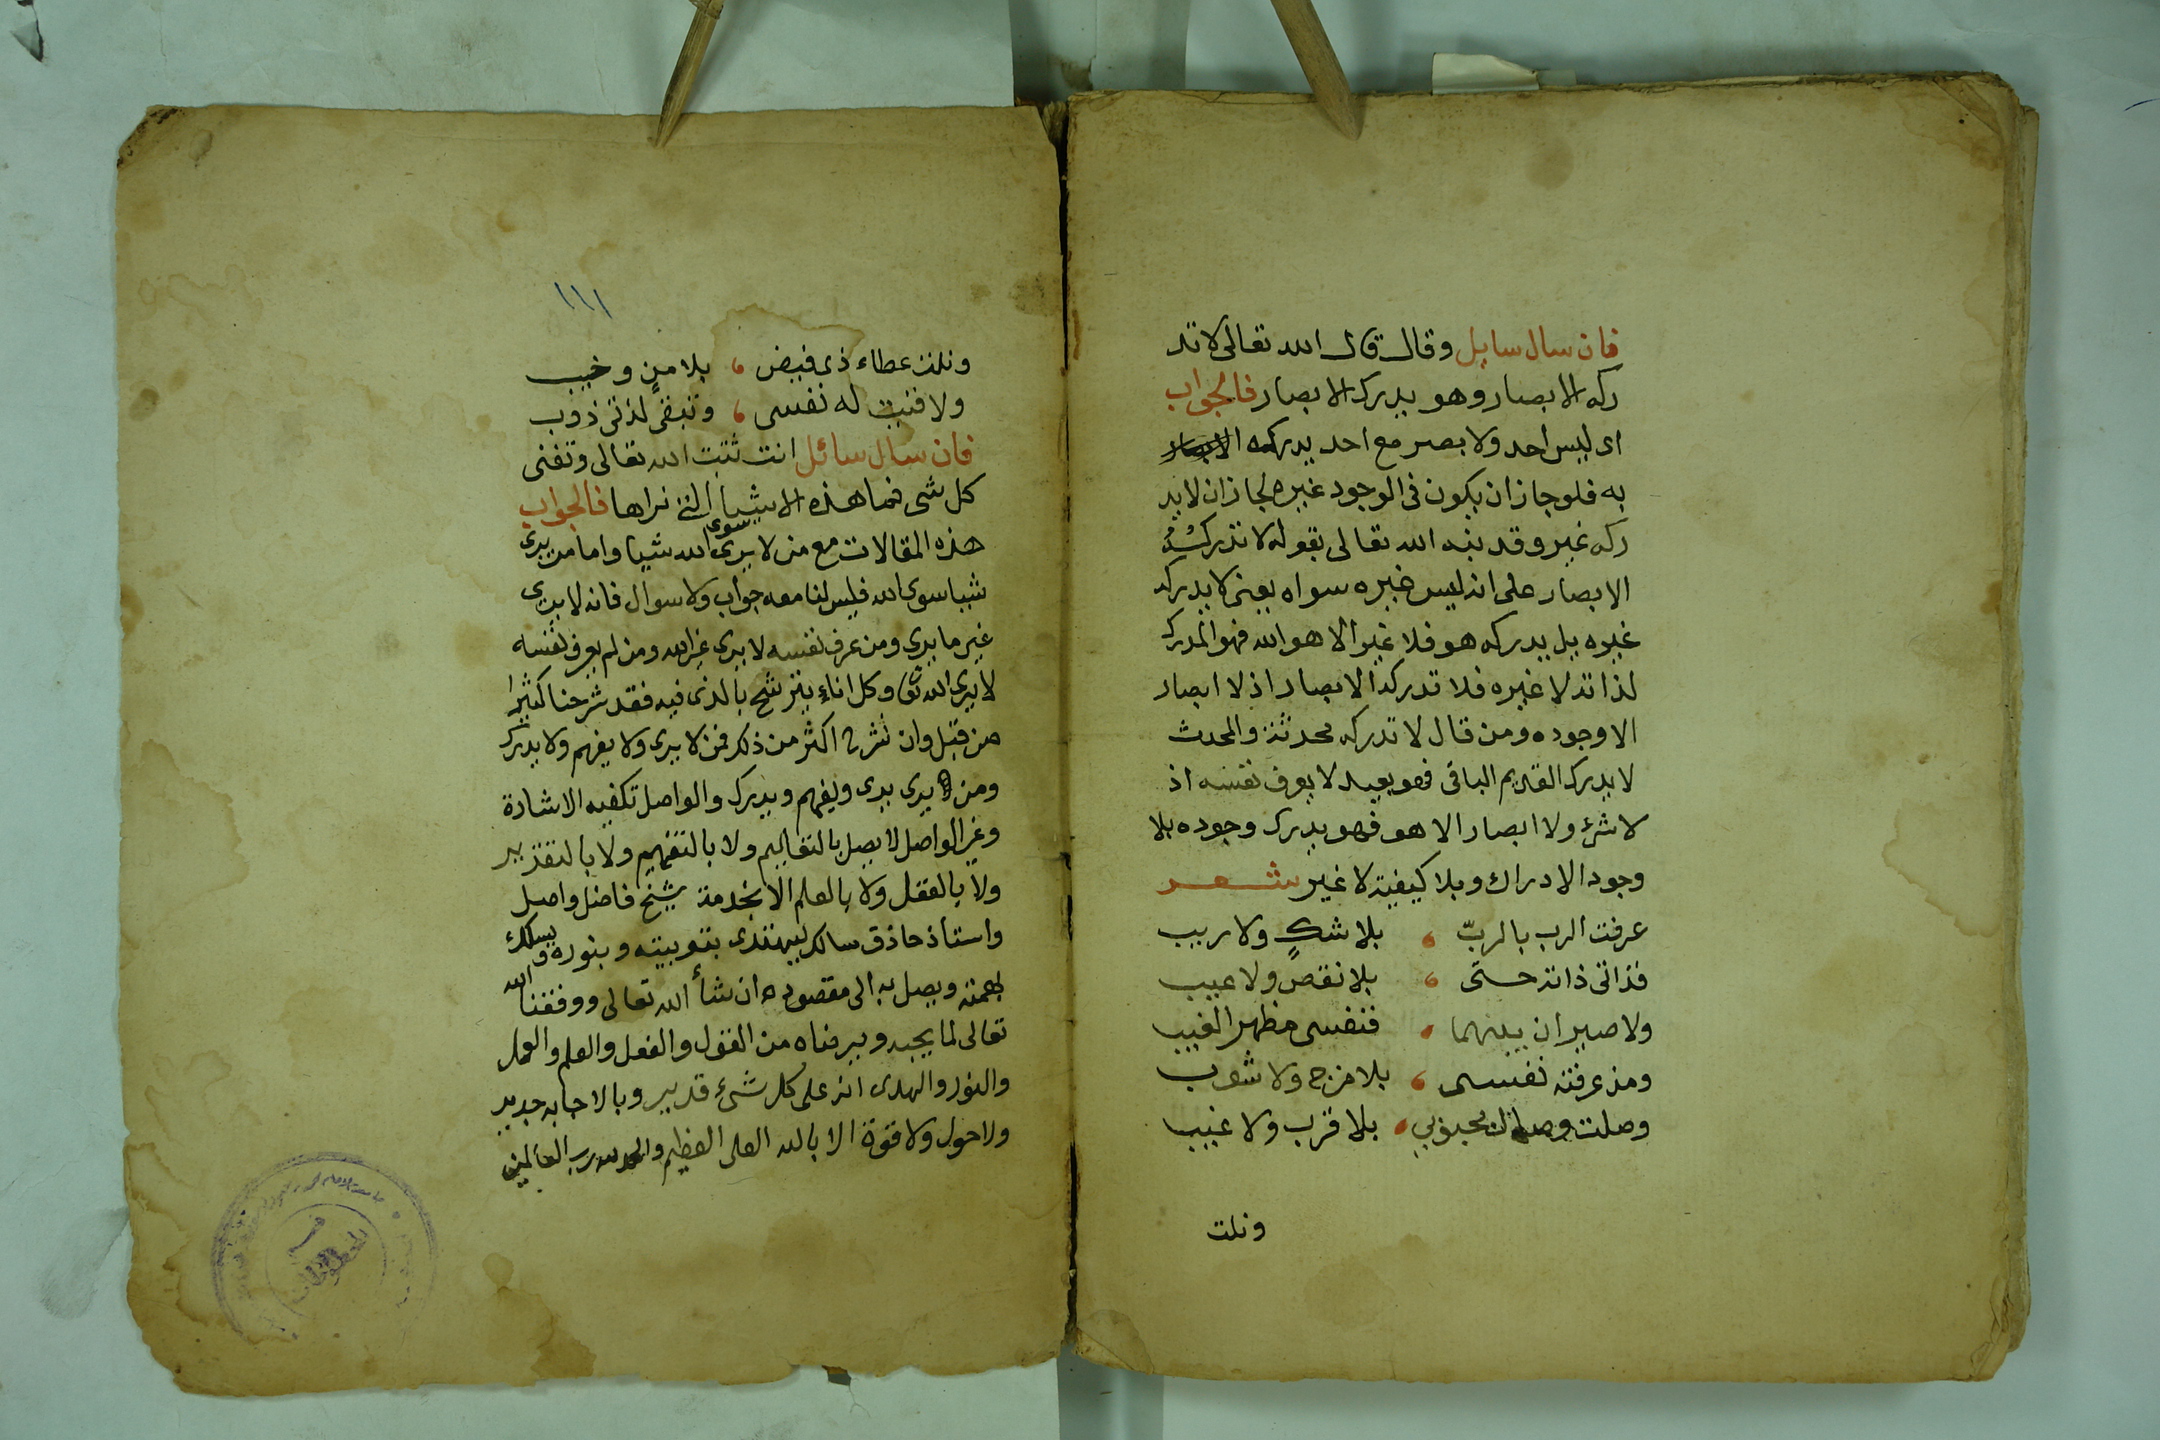 فان سال سايل وقال قال الله تعالى لا تد
ركه الابصار وهو يدرك الابصار فالجواب
اى ليس احد ولا بصر مع احد يدركه
به فلو جاز ان يكون فى الوجود غيره لجاز ان لا يد
ركه غير وقد نبه الله تعالى بقوله لا تدركه
الابصار على انه ليس غيره سواه يعنى لا يدركه
غيره بل يدركه هو فلا غير الا هو الله فهو المدرك
لذاته لا غيره فلا تدركه الابصار اذ لا ابصار
الا وجوده ومن قال لا تدركه محدثة والمحدث
لا يدرك القديم الباقى فهو بعيد لا يعرف نفسه اذ
لا شئ ولا ابصار الا هو فهو يدرك وجوده بلا
وجود الادراك وبلا كيفية لا غير شعر
عرفت الرب بالربّ ، بلا شكٍ ولا ريب
فذاتى ذاته حتى ، بلا نقصٍ ولا عيب
ولا صيران بينهما ، فنفسى مظهر الغيب
ومذ عرفته نفسى ، بلا مزج ولا شوب
وصلت وصل محبوبي ، بلا قرب ولا غيب
ونلت
١١١
ونلت عطاء ذى فيض ، بلا منٍ وخيب
ولا فنيت له نفسى ، وتبقى لذتى ذوب
فان سال سائل انت تثبت الله تعالى وتفنى
كل شى فما هذه الاشيا التى نراها فالجواب
هذه المقالات مع من لا يرى سوى الله شيا واما من يرى
شيا سوى الله فليس لنا معه جواب ولا سوال فانه لا يرى
غير ما يرى ومن عرف نفسه لا يرى غير الله ومن لم يعرف نفسه
لا يرى الله تعا وكل اناء ينزشح بالذى فيه فقد شرحنا كثيرا
من قبل وان نشرح اكثر من ذلك فمن لا يرى ولا يفهم ولا يدرك
ومن يرى يرى ويفهم ويدرك والواصل تكفيه الاشادة
وغير الواصل لا يصل بالتعاليم ولا بالتفهيم ولا بالتقرير
ولا بالعقل ولا بالعلم الا بخدمة شيخ فاضل واصل
واستاذ حاذق سالك ليهتدى بتوبيته وبنوره ويسلك
بهمته ويصل به الى مقصوده ان شأ الله تعالى ووفقنا الله
تعالى لما يحبه ويرضاه من القول والفعل والعلم والعمل
والنور والهدى انه على كل شئ قدير وبالاجابه جدير
ولا حول ولا قوة الا بالله العلى العظيم والحمد لله رب العالمين
قسم
المخطوطات